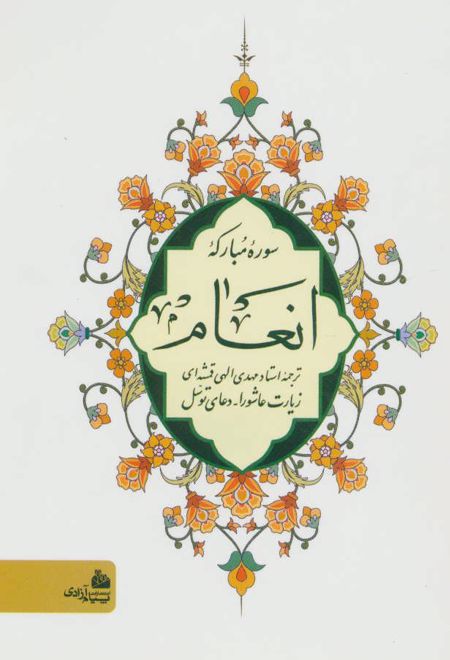 سورهٔ مبارکهٔ
انعام
ترجمهٔ استاد مهدی الهی قمشه‌ای
زیارت عاشورا - دعای توسّل
انتشارات
پیام آزادی